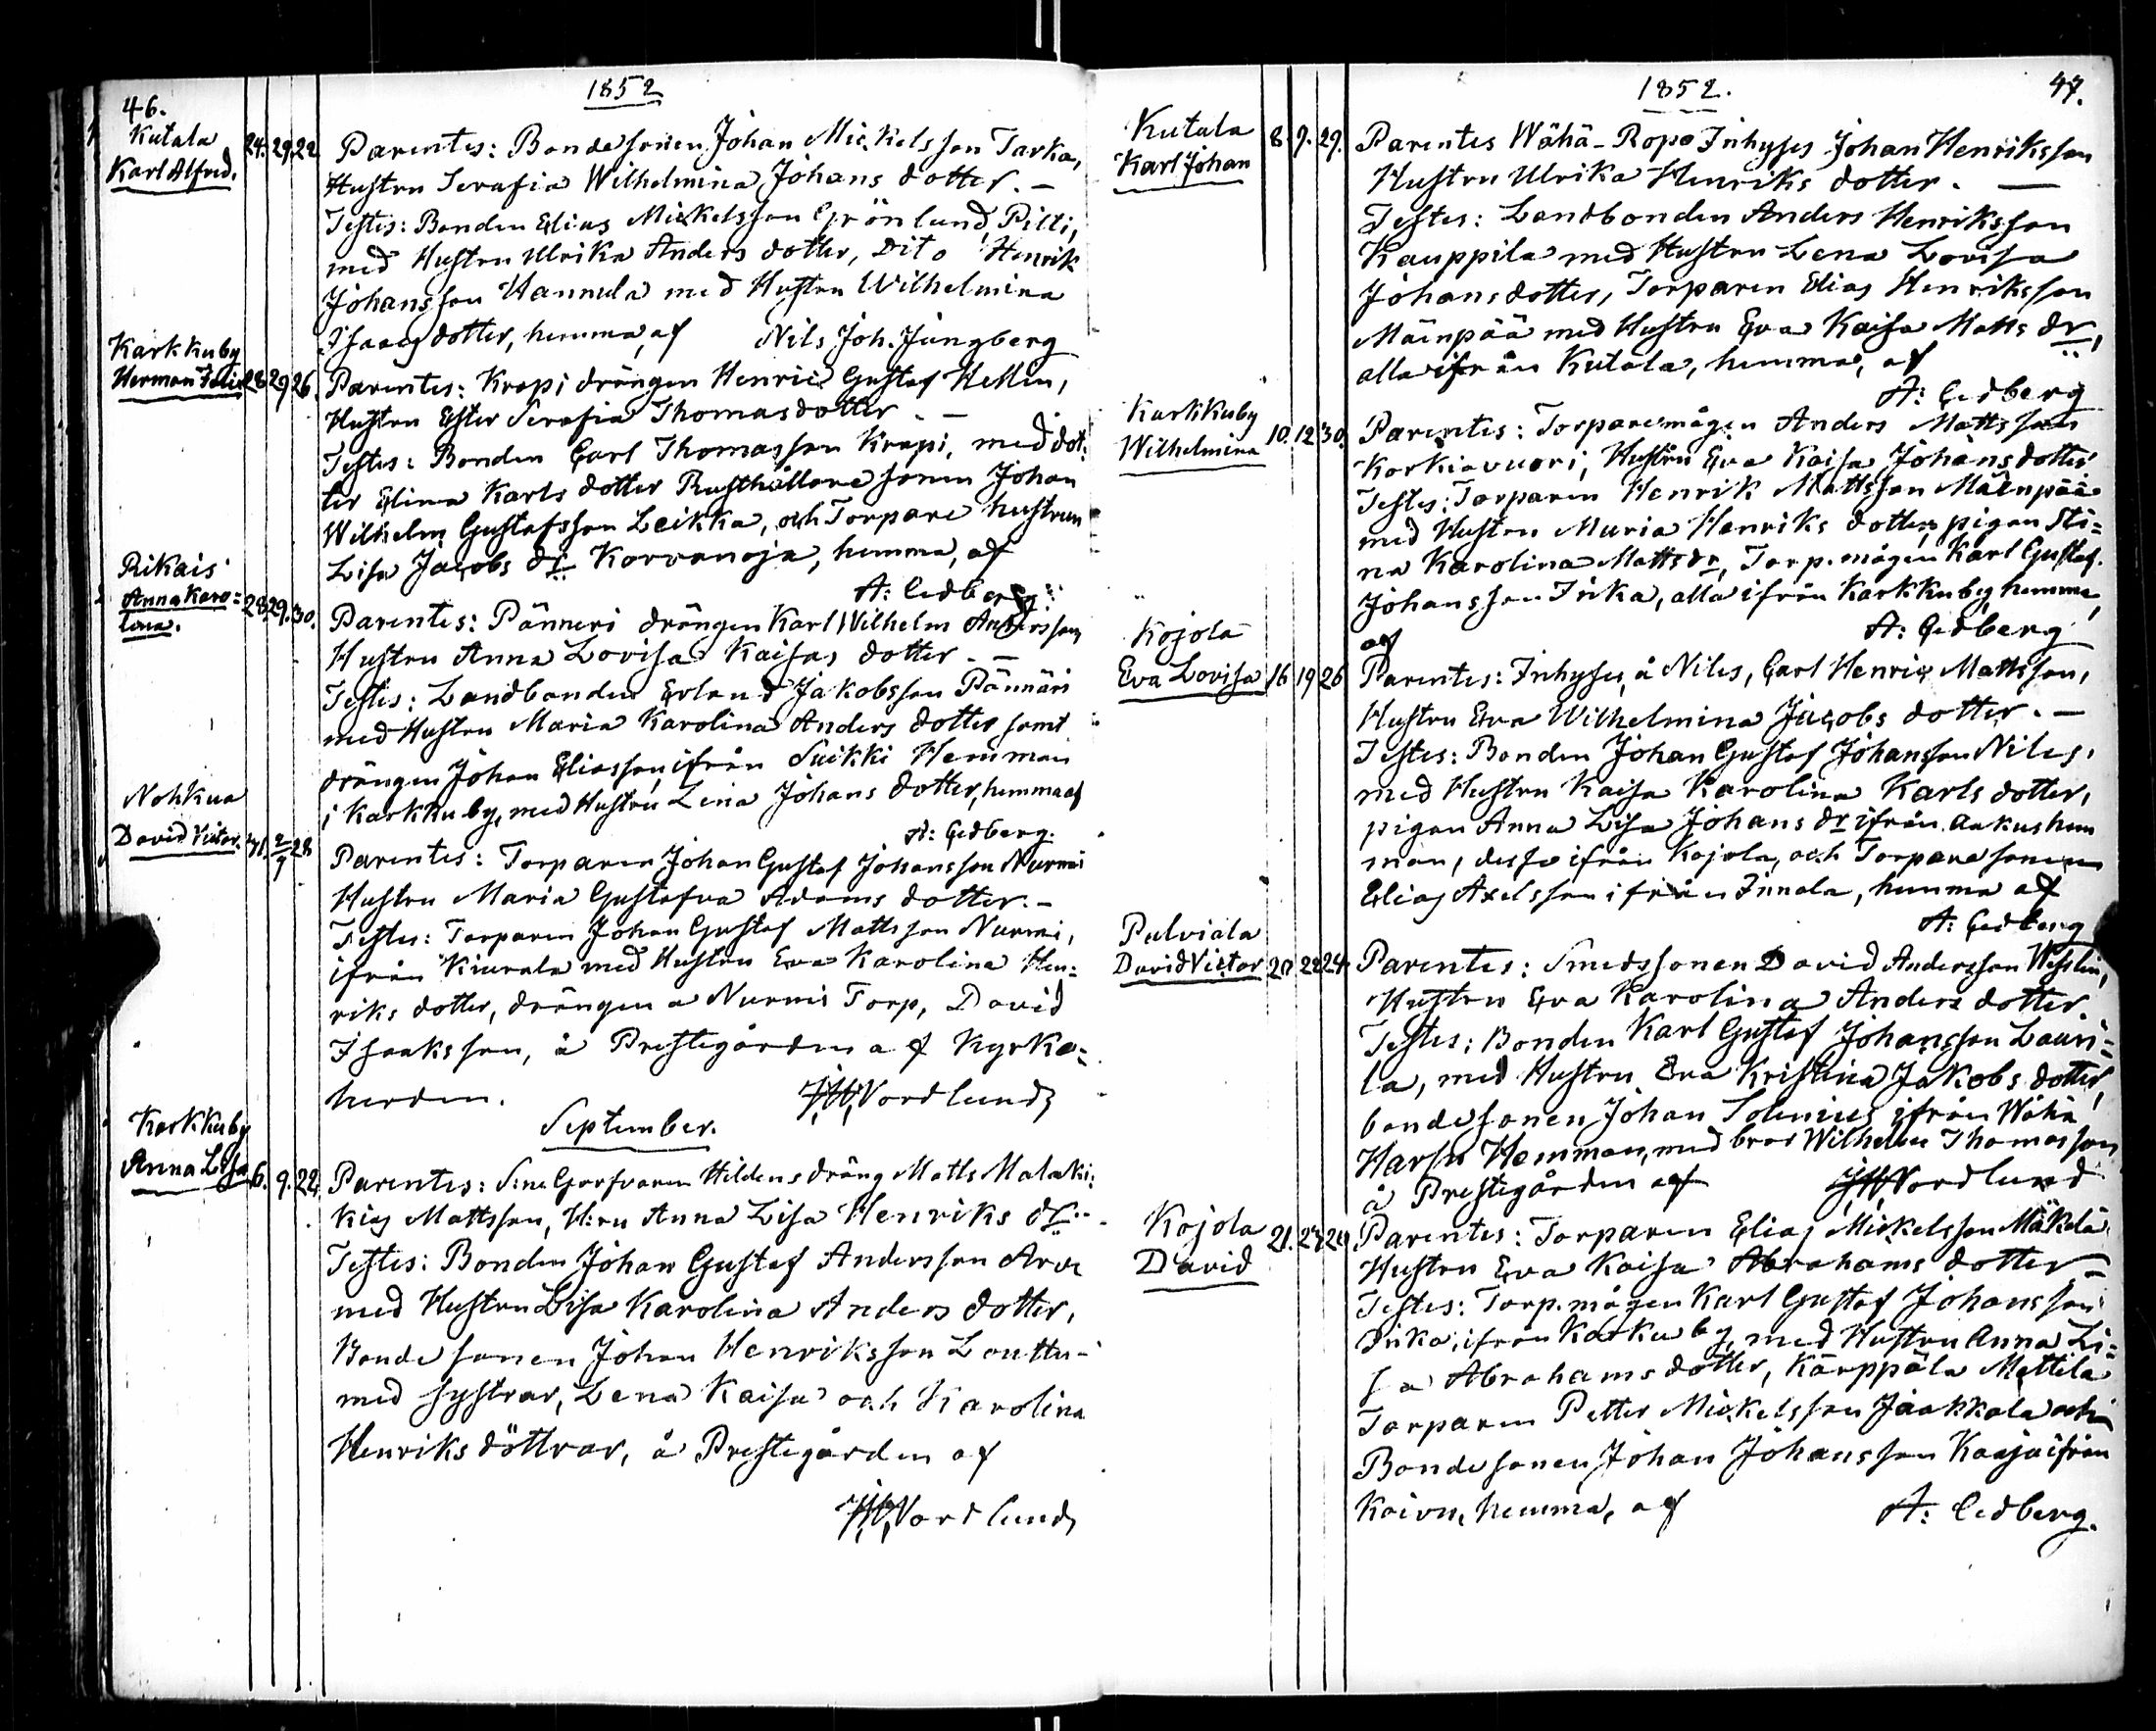 46.
1852
Kutala
Karl Alfred.
24. 29. 22
Parentes: Bondesonen Johan Mickelsson Tarka,
Hustru Serafia Wilhelmina Johans dotter. –
Testes: Bonden Elias Mickelsson Grönlund, Pilli,
med Hustru Ulrika Anders dotter, Dito Henrik
Johansson Hannula med Hustru Wilhelmina
Isaacs dotter, hemma, af Nils Joh. Jungberg
Karkkuby
Herman Felix
28 29 26.
Parentes: Krapi drängen Henric Gustaf Hellén,
Hustru Ester Serafia Thomasdotter. –
Testes: Bonden Carl Thomasson Krapi, med dot-
ter Elina Karls dotter Rusthållare sonen Johan
Wilhelm Gustafsson Leikka, och Torpare hustrun
Lisa Jacobs dr Korvanoja, hemma, af
A: Cedberg
Rikais
Anna Karo=
lina.
28 29. 30.
Parentes: Pänneri drängen Karl Wilhelm Andersson,
Hustru Anna Lovisa Kaisas dotter. –
Testes: Landbonden Erland Jakobsson Pännäri
med Hustru Maria Karolina Anders dotter samt
drängen Johan Eliasson, ifrån Suikki Hemman
i Karkkuby, med Hustru Lena Johans dotter, hemma af
A: Cedberg.
Nohkua
David Victor.
31. 2/9 28
Parentes: Torparen Johan Gustaf Johansson Nurmi
Hustru Maria Gustafva Adams dotter. –
Testes: Torparen Johan Gustaf Mattsson Nurmi,
ifrån Kiurala med Hustru Eva Karolina Hen=
riks dotter, drängen a Nurmis Torp, David
Isaaksson, å Prestegården af Kyrko=
herden. Nordlund
September.
Karkkuby
Anna Lisa
6. 9. 22.
Parentes: Garfvaren Hildens dräng Matts Malaki:
kias Mattsson, H:ru Anna Lisa Henriks dr. –
Testes: Bonden Johan Gustaf Andersson Arvi
med Hustru Lisa Karolina Anders dotter,
Bonde sonen Johan Henriksson Louttu-
med systrar, Lena Kaisa och Karolina
Henriks döttrar, å Prestegården af
Nordlund
1852.
47.
Kutala
Karl Johan
8. 9. 29.
Parentes Wähä-Ropo Inhyses Johan Henriksson
Hustru Ulrika Henriks dotter. –
Testes: Landbonden Anders Henriksson
Kauppila med Hustru Lena Lovisa
Johansdotter, Torparen Elias Henriksson
Mäinpää med Hustru Eva Kaisa Matts dr,
alla ifrån Kutala, hemma, af
A: Cedberg
Karkkuby
Wilhelmina
10. 12. 30.
Parentes: Torparemågen Anders Mattsson
Korkiavuori, Hustru Eva Kaisa Johans dotter
Testes: Torparen Henrik Mattsson Mäenpää
med Hustru Maria Henriks dotter, pigan Sti=
na Karolina Matts dr, Torp. mågen Karl Gustaf
Johansson Inka, alla ifrån Karkkuby, hemma,
af A: Cedberg
Kojola
Eva Lovisa
16 19 26
Parentes: Inhyses å Niles, Carl Henric Mattsson,
Hustru Eva Wilhelmina Jacobs dotter. –
Testes: Bonden Johan Gustaf Johansson Niles,
med Hustru Kaisa Karolina Karls dotter,
pigan Anna Lisa Johans dr ifrån Aakus hem
man, desse ifrån Kojola, och Torpare sonen
Elias Axelsson ifrån Innala, hemma af
A: Cedberg
Palviala
David Victor
20. 22 24.
Parentes: Smedssonen David Andersson Wesslin,
Hustru Eva Karolina Anders dotter.
Testes: Bonden Karl Gustaf Johansson Lauri=
la, med Hustru Eva Kristina Jakobs dotter,
bonde sonen Johan Solenius ifrån Wähä
Harsu Hemman, med bror Wilhelm Thomasson
å Prestegården af Nordlund
Kojola
David
21.
Parentes: Torparen Elias Mickelsson Mäkelä
Hustru Eva Kaisa Abrahams dotter –
Testes: Torp. mågen Karl Gustaf Johansson
Inka, ifrån Karkuby, med Hustru Anna Li=
sa Abrahams dotter, Karppäla Mattila
Torparen Petter Mickelsson Jaakkola och
Bondesonen Johan Johansson Kaaja ifrån
Koivu, hemma, af A: Cedberg.